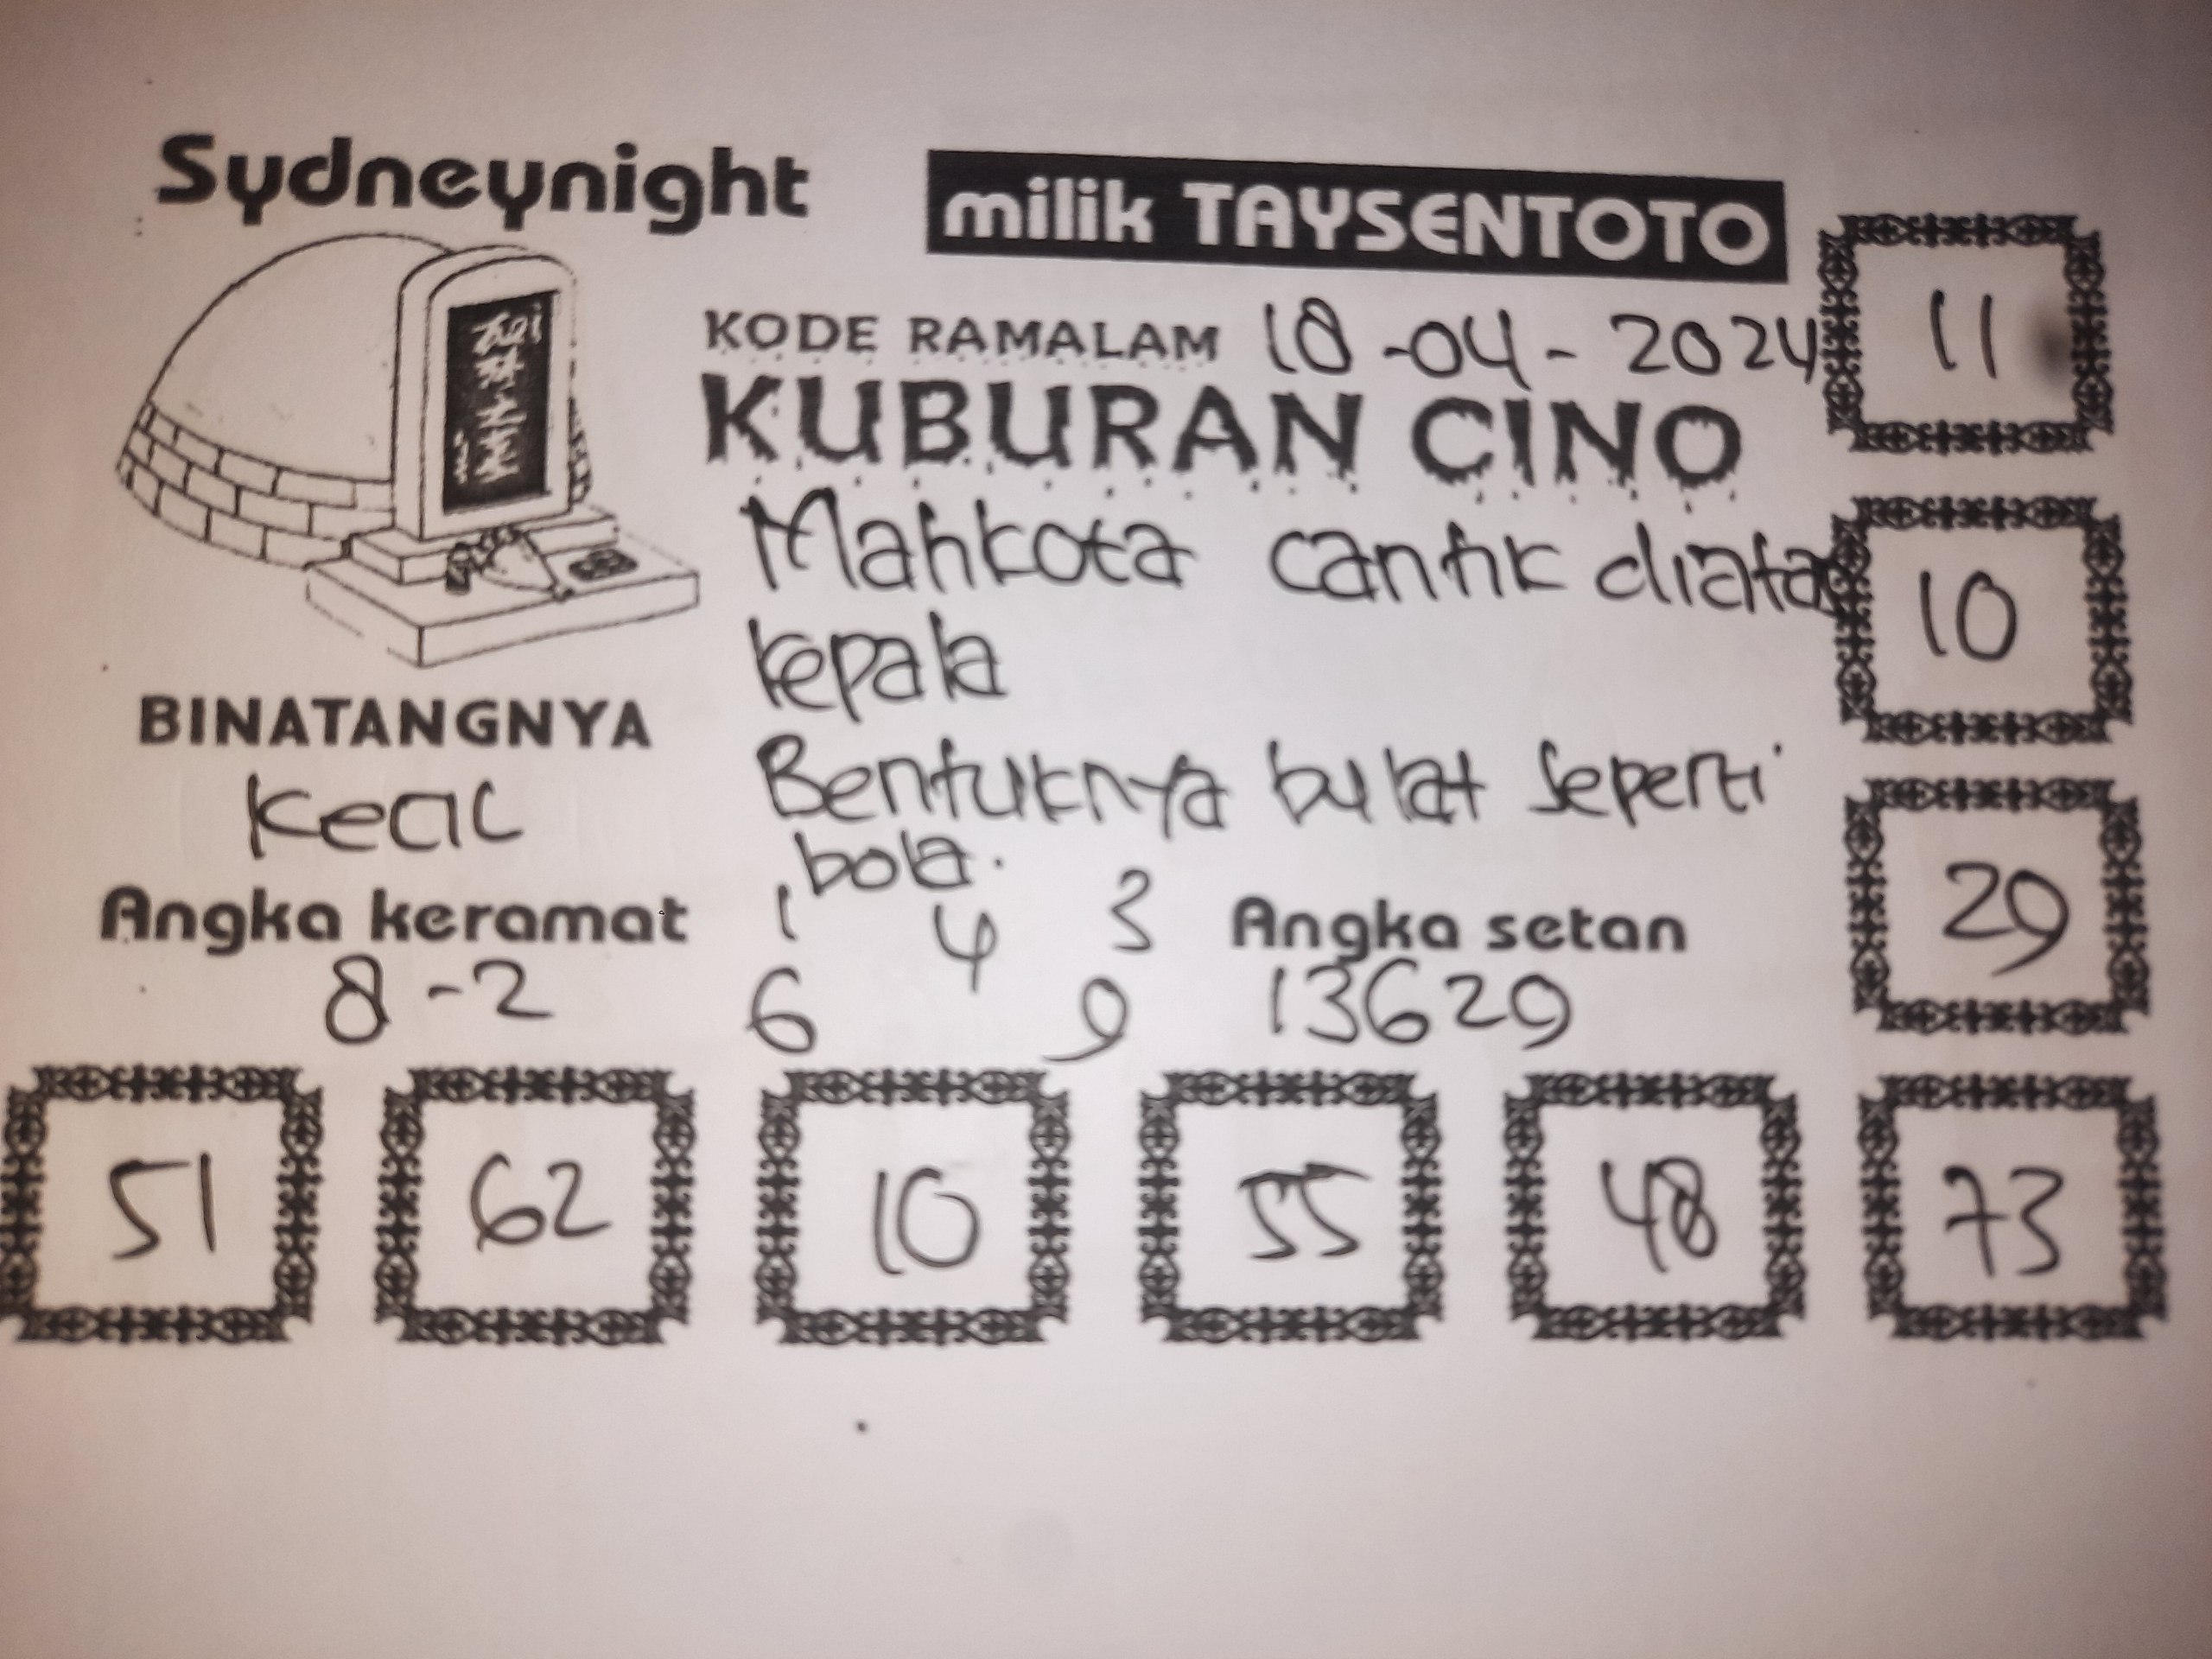 Sydneynight
milik TAYSENTOTO
KODE RAMALAM 18-04-2024
KUBURAN CINO
Mahkota cantik diatas
kepala
Bentuknya bulat seperti
bola.
BINATANGNYA
Kecil
Angka keramat
8-2
1 4 3
6 9
Angka setan
13629
11
10
29
51
62
10
55
48
73